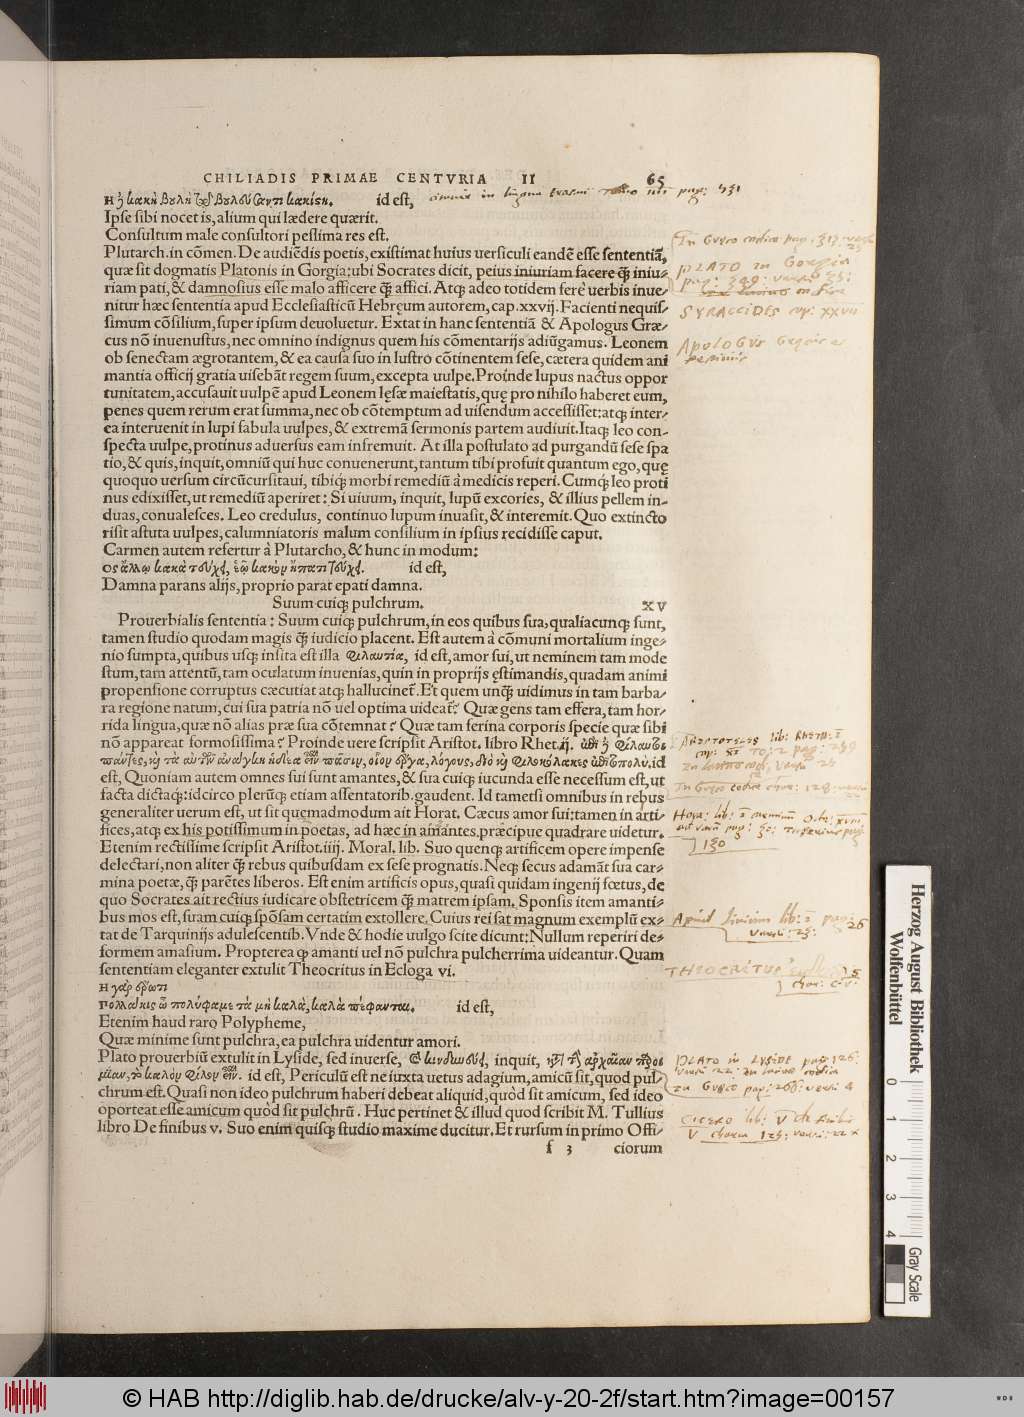 CHILIADIS PRIMAE CENTVRIA II 65
id est,
Ipse sibi nocet is, alium qui lædere quærit.
Consultum male consultori pessima res est.
Plutarch. in cōmen. De audiēdis poetis, existimat huius versiculi eandē esse sententiā,
quæ sit dogmatis Platonis in Gorgia: ubi Socrates dicit, peius iniuriam facere q̃ iniu-
riam pati, & damnosius esse malo afficere q̃ affici. Atq; adeo totidem ferè verbis inue-
nitur hæc sententia apud Ecclesiasticū Hebręum autorem, cap. xxvij. Facienti nequis-
simum cōsilium, super ipsum deuoluetur. Extat in hanc sententiā & Apologus Græ-
cus nō inuenustus, nec omnino indignus quem his cōmentarijs adiūgamus. Leonem
ob senectam ægrotantem, & ea causa suo in lustro cōtinentem sese, cætera quidem ani
mantia officij gratia uisebāt regem suum, excepta uulpe. Proinde lupus nactus oppor
tunitatem, accusauit uulpē apud Leonem lęsæ maiestatis, quę pro nihilo haberet eum,
penes quem rerum erat summa, nec ob cōtemptum ad uisendum accessisset: atq; inter-
ea interuenit in lupi fabula uulpes, & extremā sermonis partem audiuit. Itaq; leo con-
specta uulpe, protinus aduersus eam infremuit. At illa postulato ad purgandū sese spa
tio, & quis, inquit, omniū qui huc conuenerunt, tantum tibi profuit quantum ego, quę
quoquo uersum circūcursitaui, tibiq; morbi remediū à medicis reperi. Cumq; leo proti
nus edixisset, ut remediū aperiret: Si uiuum, inquit, lupū excories, & illius pellem in-
duas, conualesces. Leo credulus, continuo lupum inuasit, & interemit. Quo extincto
risit astuta uulpes, calumniatoris malum consilium in ipsius recidisse caput.
Carmen autem refertur à Plutarcho, & hunc in modum:
id est,
Damna parans alijs, proprio parat epati damna.
Suum cuiq; pulchrum. XV
Prouerbialis sententia: Suum cuiq; pulchrum, in eos quibus sua, qualiacunq; sunt,
tamen studio quodam magis q̃ iudicio placent. Est autem à cōmuni mortalium inge-
nio sumpta, quibus usq; insita est illa φιλαυτία, id est, amor sui, ut neminem tam mode
stum, tam attentū, tam oculatum inuenias, quin in proprijs ęstimandis, quadam animi
propensione corruptus cæcutiat atq; hallucinet. Et quem unq̃ uidimus in tam barba-
ra regione natum, cui sua patria nō uel optima uideat? Quæ gens tam effera, tam hor-
rida lingua, quæ nō alias præ sua cōtemnat? Quæ tam ferina corporis specie quæ sibi
nō appareat formosissima? Proinde uere scripsit Aristot. libro Rhet. ij.
id
est, Quoniam autem omnes sui sunt amantes, & sua cuiq; iucunda esse necessum est, ut
facta dictaq;: idcirco plerūq; etiam assentatorib. gaudent. Id tametsi omnibus in rebus
generaliter uerum est, ut sit quemadmodum ait Horat. Cæcus amor sui: tamen in arti-
fices, atq; ex his potissimum in poetas, ad hæc in amantes, præcipue quadrare uidetur.
Etenim rectissime scripsit Aristot. iiij. Moral. lib. Suo quenq; artificem opere impense
delectari, non aliter q̃ rebus quibusdam ex sese prognatis. Neq; secus adamāt sua car-
mina poetæ, q̃ parētes liberos. Est enim artificis opus, quasi quidam ingenij fœtus, de
quo Socrates ait rectius iudicare obstetricem q̃ matrem ipsam. Sponsis item amanti-
bus mos est, suam cuiq; spōsam certatim extollere. Cuius rei sat magnum exemplū ex-
tat de Tarquinijs adulescentib. Vnde & hodie uulgo scite dicunt: Nullum reperiri de-
formem amasium. Propterea q amanti uel nō pulchra pulcherrima uideantur. Quam
sententiam eleganter extulit Theocritus in Ecloga vi.
id est,
Etenim haud raro Polypheme,
Quæ minime sunt pulchra, ea pulchra uidentur amori.
Plato prouerbiū extulit in Lyside, sed inuerse, inquit,
id est, Periculū est ne iuxta uetus adagium, amicū sit, quod pul-
chrum est. Quasi non ideo pulchrum haberi debeat aliquid, quòd sit amicum, sed ideo
oporteat esse amicum quòd sit pulchrū. Huc pertinet & illud quod scribit M. Tullius
libro De finibus v. Suo enim quisq; studio maxime ducitur. Et rursum in primo Offi-
f 3 ciorum
PLATO in Gorgia
SYRACCIDES cap: XXVII
APOLOGVS
THEOCRITVS
PLATO in LYSIDE pag: 126
CICERO lib: V de finibus
Herzog August Bibliothek
Wolfenbüttel
0 1 2 3 4
Gray Scale
© HAB http://diglib.hab.de/drucke/alv-y-20-2f/start.htm?image=00157